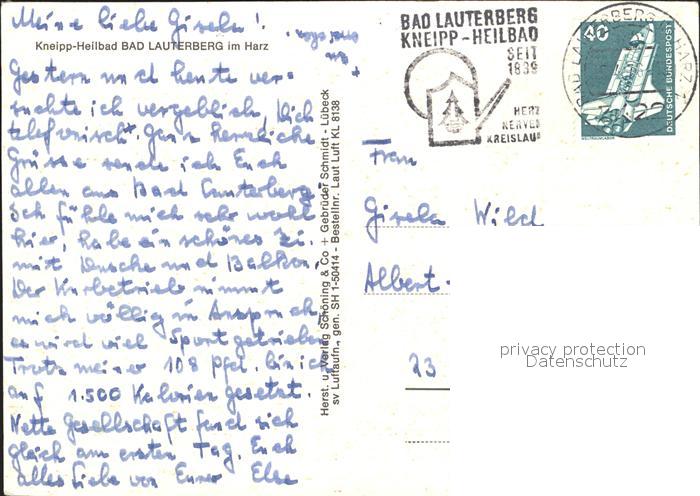 Meine liebe Gisela!
Kneipp-Heilbad BAD LAUTERBERG im Harz
Gestern und heute ver-
suchte ich vergeblich, Dich
telefonisch Ganz herzliche
Grüsse sende ich Euch
allen aus Bad Lauterberg.
Ich fühle mich sehr wohl
hier, habe ein schönes Zi.
mit Dusche und Balkon.
Der Kurbetrieb nimmt
mich völlig in Anspruch
es wird viel Sport getrieben
Trotz meiner 108 Pfd. bin ich
auf 1.500 Kalorien gesetzt.
Nette Gesellschaft fand sich
gleich am ersten Tag. Euch
alles Liebe von Eurer Else
Herst. u. Verlag Schöning & Co + Gebrüder Schmidt - Lübeck
sv Luftaufn., gen. SH 1-50414 - Bestellnr. Laut Luft KL 8138
BAD LAUTERBERG
KNEIPP-HEILBAD
SEIT
1839
HERZ
NERVEN
KREISLAUF
40
DEUTSCHE BUNDESPOST
Frau
Gisela Wild
Albert.
23
privacy protection
Datenschutz